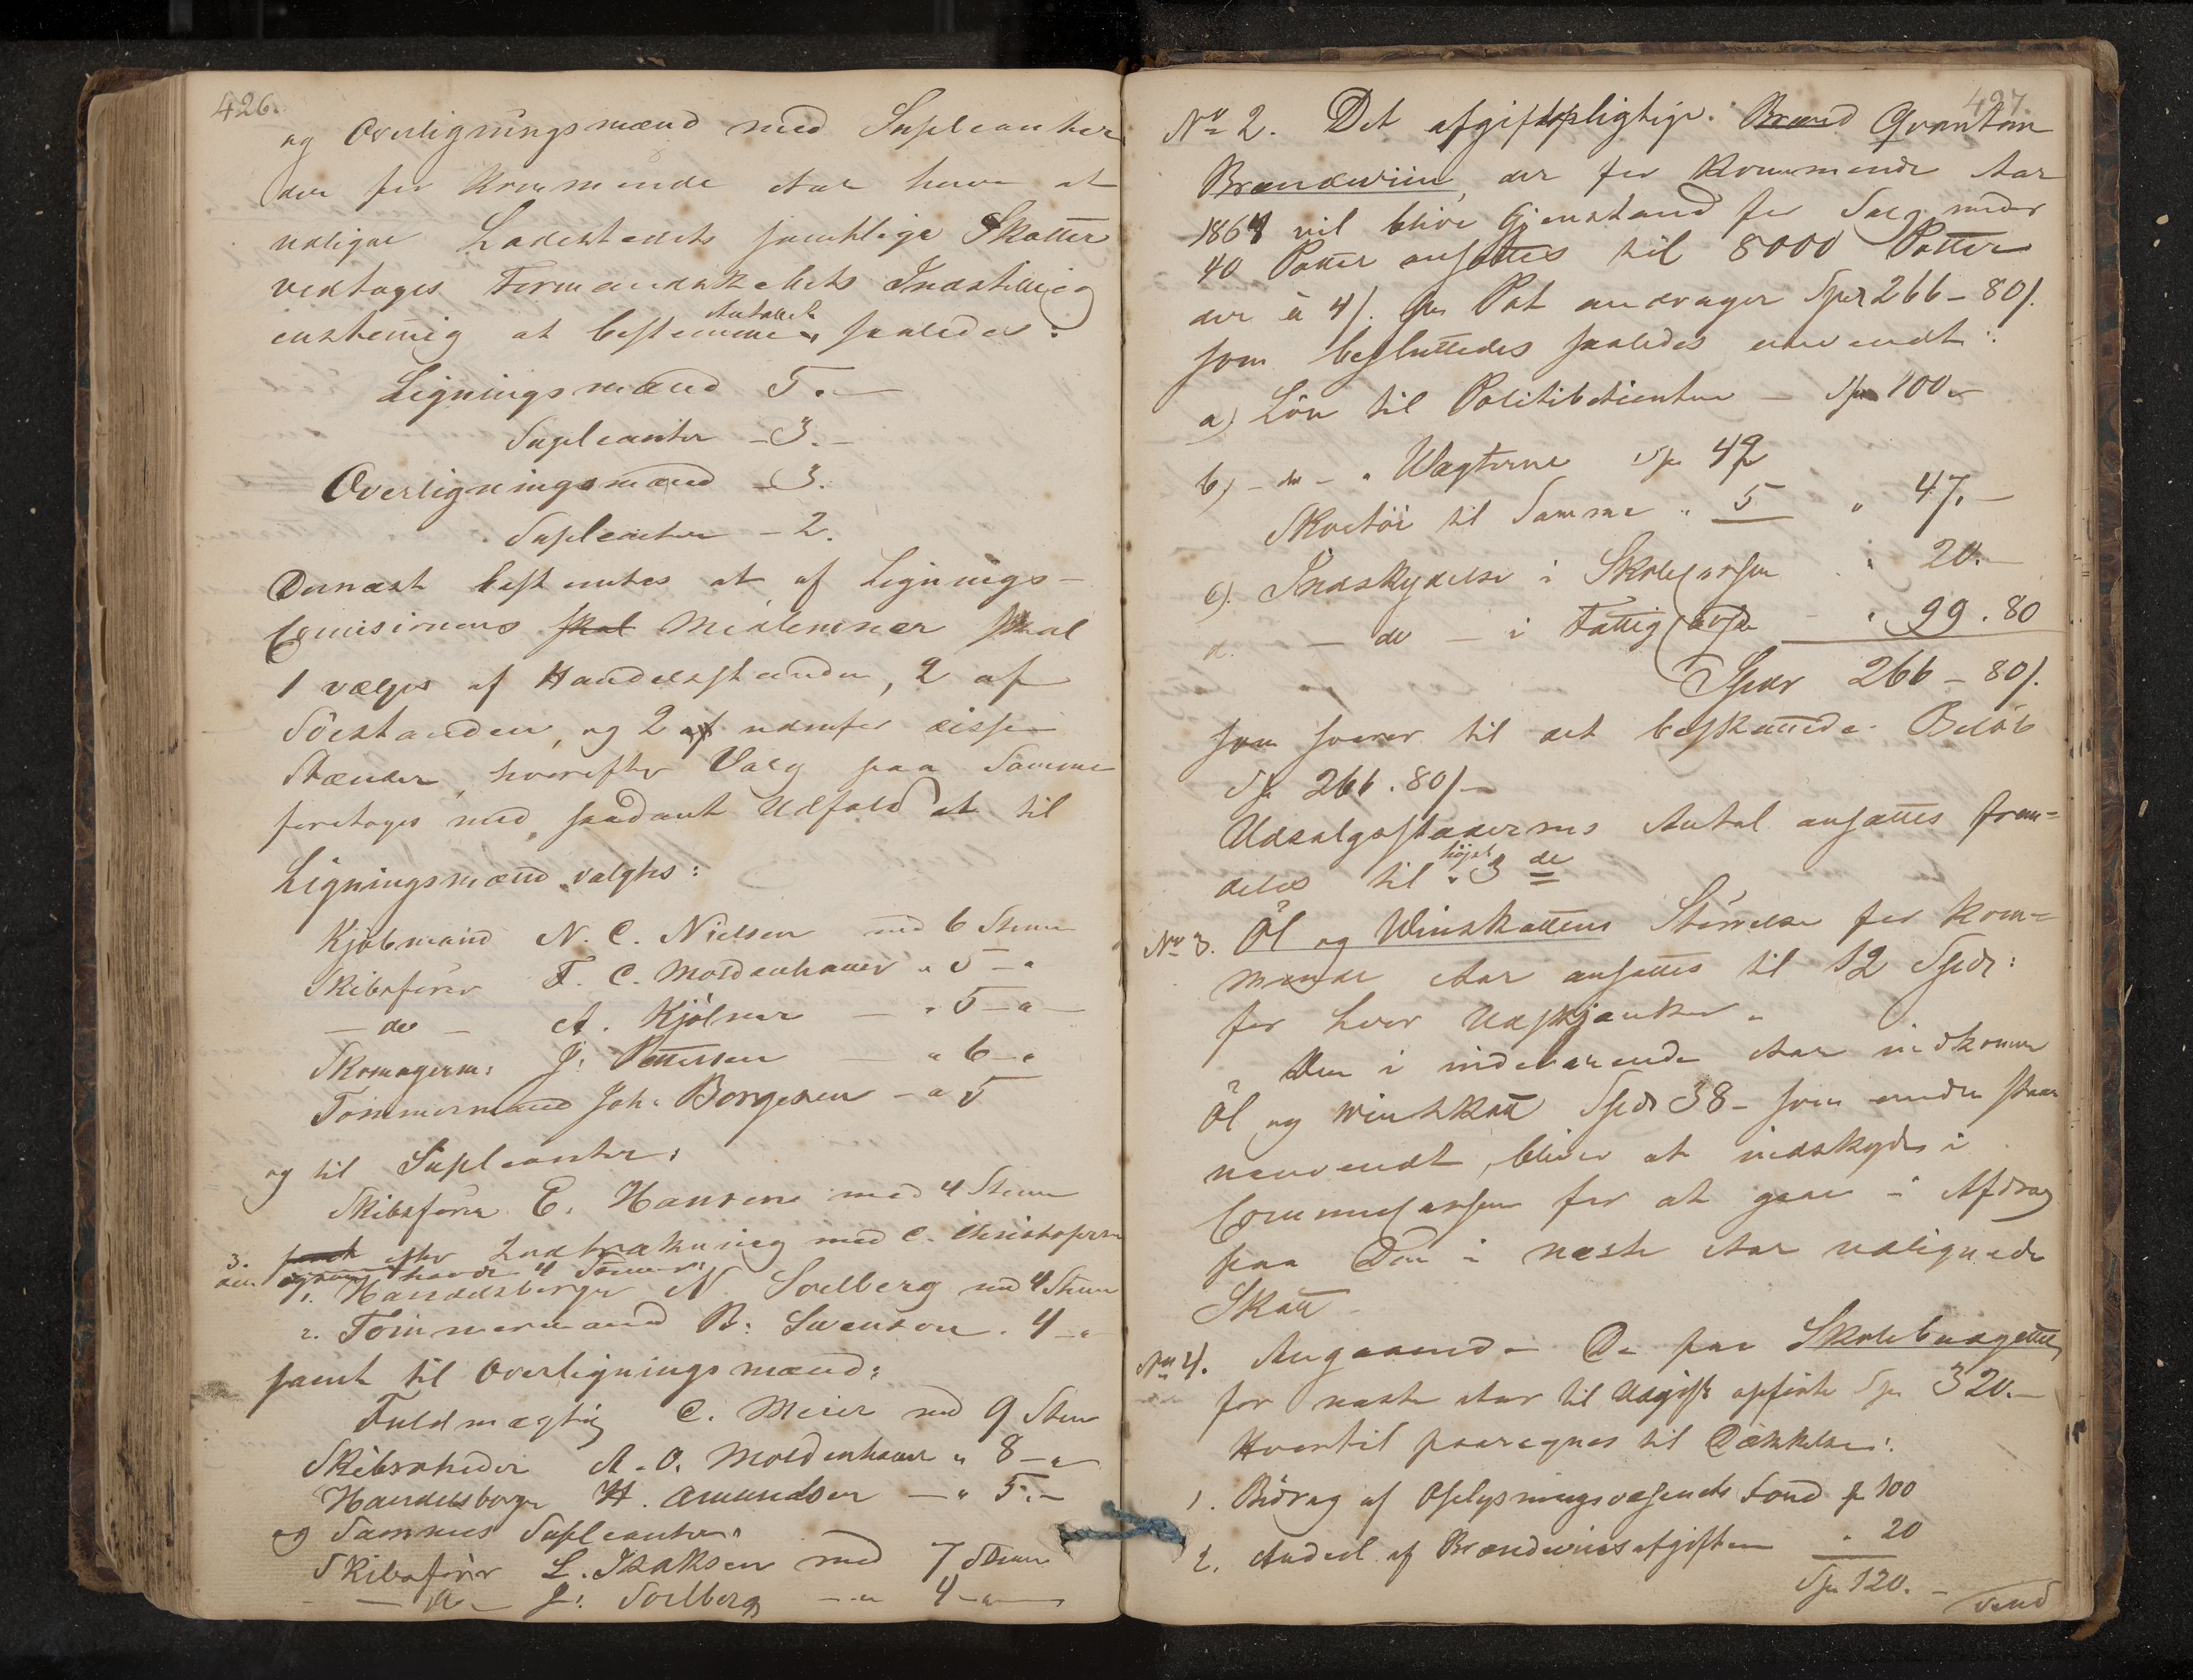 426.
og Overligningsmænd med Supleanter
der for kommende Aar have at
udligne Ladestedets samtlige Skatter
vedtoges Formandskabets Indstilling
enstemig at bestemme Antallet saaledes:
Ligningsmænd 5.-
Supleanter - 3.-
Overligningsmænd - 3.
Supleanter - 2.
Dernæst bestemtes at af Lignings-
Comisionens skal Medlemmer skal
1 vælges af Handelsstanden, 2 af
Söestanden, og 2 af udenfor disse
Stænder, hvorefter Valg paa Samme
foretoges med saadant Udfald at til
Ligningsmænd valgtes:
Kjöbmand N. C. Nielsen med 6 Stemr
Skibsförer F. C. Moldenhauer " 5 - "
- do - A. Kjölner - " 5 - "
Skomagerm: J. Pettersen - " 6 - "
Tömmermand Joh. Borgesen - " 5
og til Supleanter:
Skibsförer E. Hansen med 4 Stemr
3. efter Lodtrækning med C. Christophersen
havde 4 Stemmer
1. Handelsborger N. Soelberg med 4 Stemr
2. Tömmermand B: Svenson . 4 - "
samt til Overligningsmænd:
Fuldmægtig C. Meier med 9 Stemr
Skibsrheder A. O. Moldenhauer " 8 - "
Handelsborger H. Amundsen - " 5. -
og Sammes Supleanter:
Skibsförer L. Isaksen med 7 Stemr
- do - J: Soelberg - " 4 - "
427.
No 2. Det afgiftspligtige Brænd Qvantum
Brændeviin, der for kommende Aar
1864 vil blive Gjenstand for Salg under
40 Potter ansættes til 8000 Potter
der à 4 s. pr Pot andrager Spdr 266 - 80 s.
som besluttedes saaledes anvendt:
a) Lön til Politibetienten - Spd 100 -
b) - do - " Vægterne Spd 42
Skoetöi til Samme " 5 " 47. -
c). Indskydelse i Skolecassen " 20. -
d. - do - i Fattigcassen - " 99. 80
Spdr 266 - 80 s.
som svarer til det beskattede Belöb
Spd 266. 80 s -
Udsalgsstædernes Antal ansættes frem-
deles til höjst 3 de
No 3. Öl og Viinskattens Störrelse for kom-
mende Aar ansættes til 12 Spdr:
for hver Udskjænker.
Den i indeværende Aar indkomne
Öl og Viinskatt Spdr 38 - som endnu staar
uanvendt, bliver at indskyde i
Communecassen for at gaae i Afdrag
paa Den i næste Aar udlignede
Skatt -
No 4. Angaaende De paa Skolebudgettet
for næste Aar til Udgift opförte Spd 320. -
Hvortil paaregnes til Dækkelse:
1. Bidrag af Oplysningsvæsenets Fond " 100
2. Andeel af Brændeviinsafgiften " 20
Spd 120. -
vend